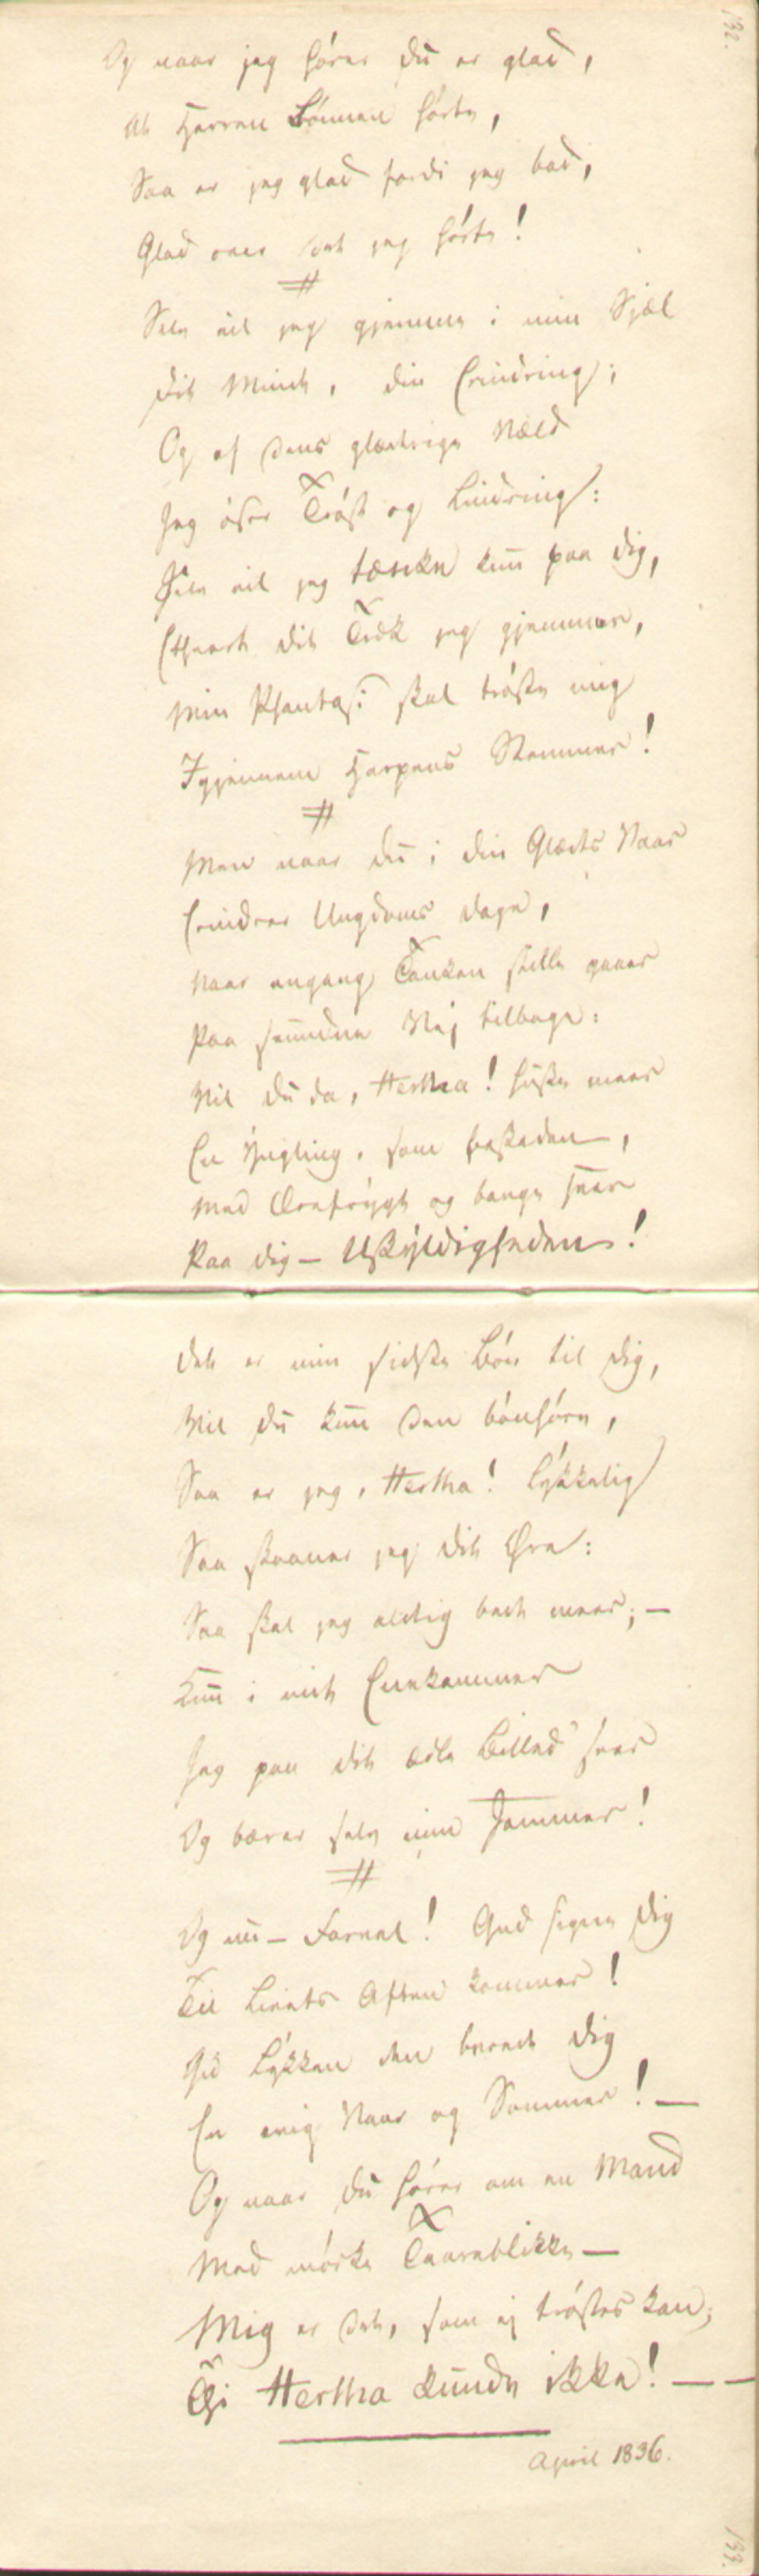 132.
Og naar jeg hører du er glad,
At Herren Bønnen hørte,
Saa er jeg glad fordi jeg bad,
Glad over det jeg hørte!
#
Selv vil jeg gjemme i min Sjæl
Dit Minde, din Erindring;
Og af dens glædrige Væld
Jeg øser Trøst og Lindring:
Selv vil jeg tænke kun paa dig,
Ethvert dit Træk jeg gjemmer,
Min Phantasi skal trøste mig
Igjennem Harpens Stemmer!
#
Men naar du i din Glæds Vaar
Erindrer Ungdoms Dage,
Naar engang Tanken stille gaaer
Paa svundne Vej tilbage:
Vil du da, Hertha! huske meer
En Yngling, som beskeden,
Med Ærefrygt og bange seer
Paa dig – Uskyldigheden!
Det er min sidste Bøn til dig,
Vil du kun den bønhøre,
Saa er jeg, Hertha! lykkelig
Saa skaaner jeg dit Øre:
Saa skal jeg aldrig bede meer; –
Kun i mit Eenkammer
Jeg paa dit ædle Billed' seer
Og bærer selv min Jammer!
#
Og nu – Farvel! Gud signe dig
Til Livets Aften kommer!
Gid Lykken den berede dig
En evig Vaar og Sommer! –
Og naar du hører om en Mand
Med mørke Taareblikke –
Mig er det, som ej trøstes kan;
Thi Hertha kunde ikke! – –
April 1836.
133.